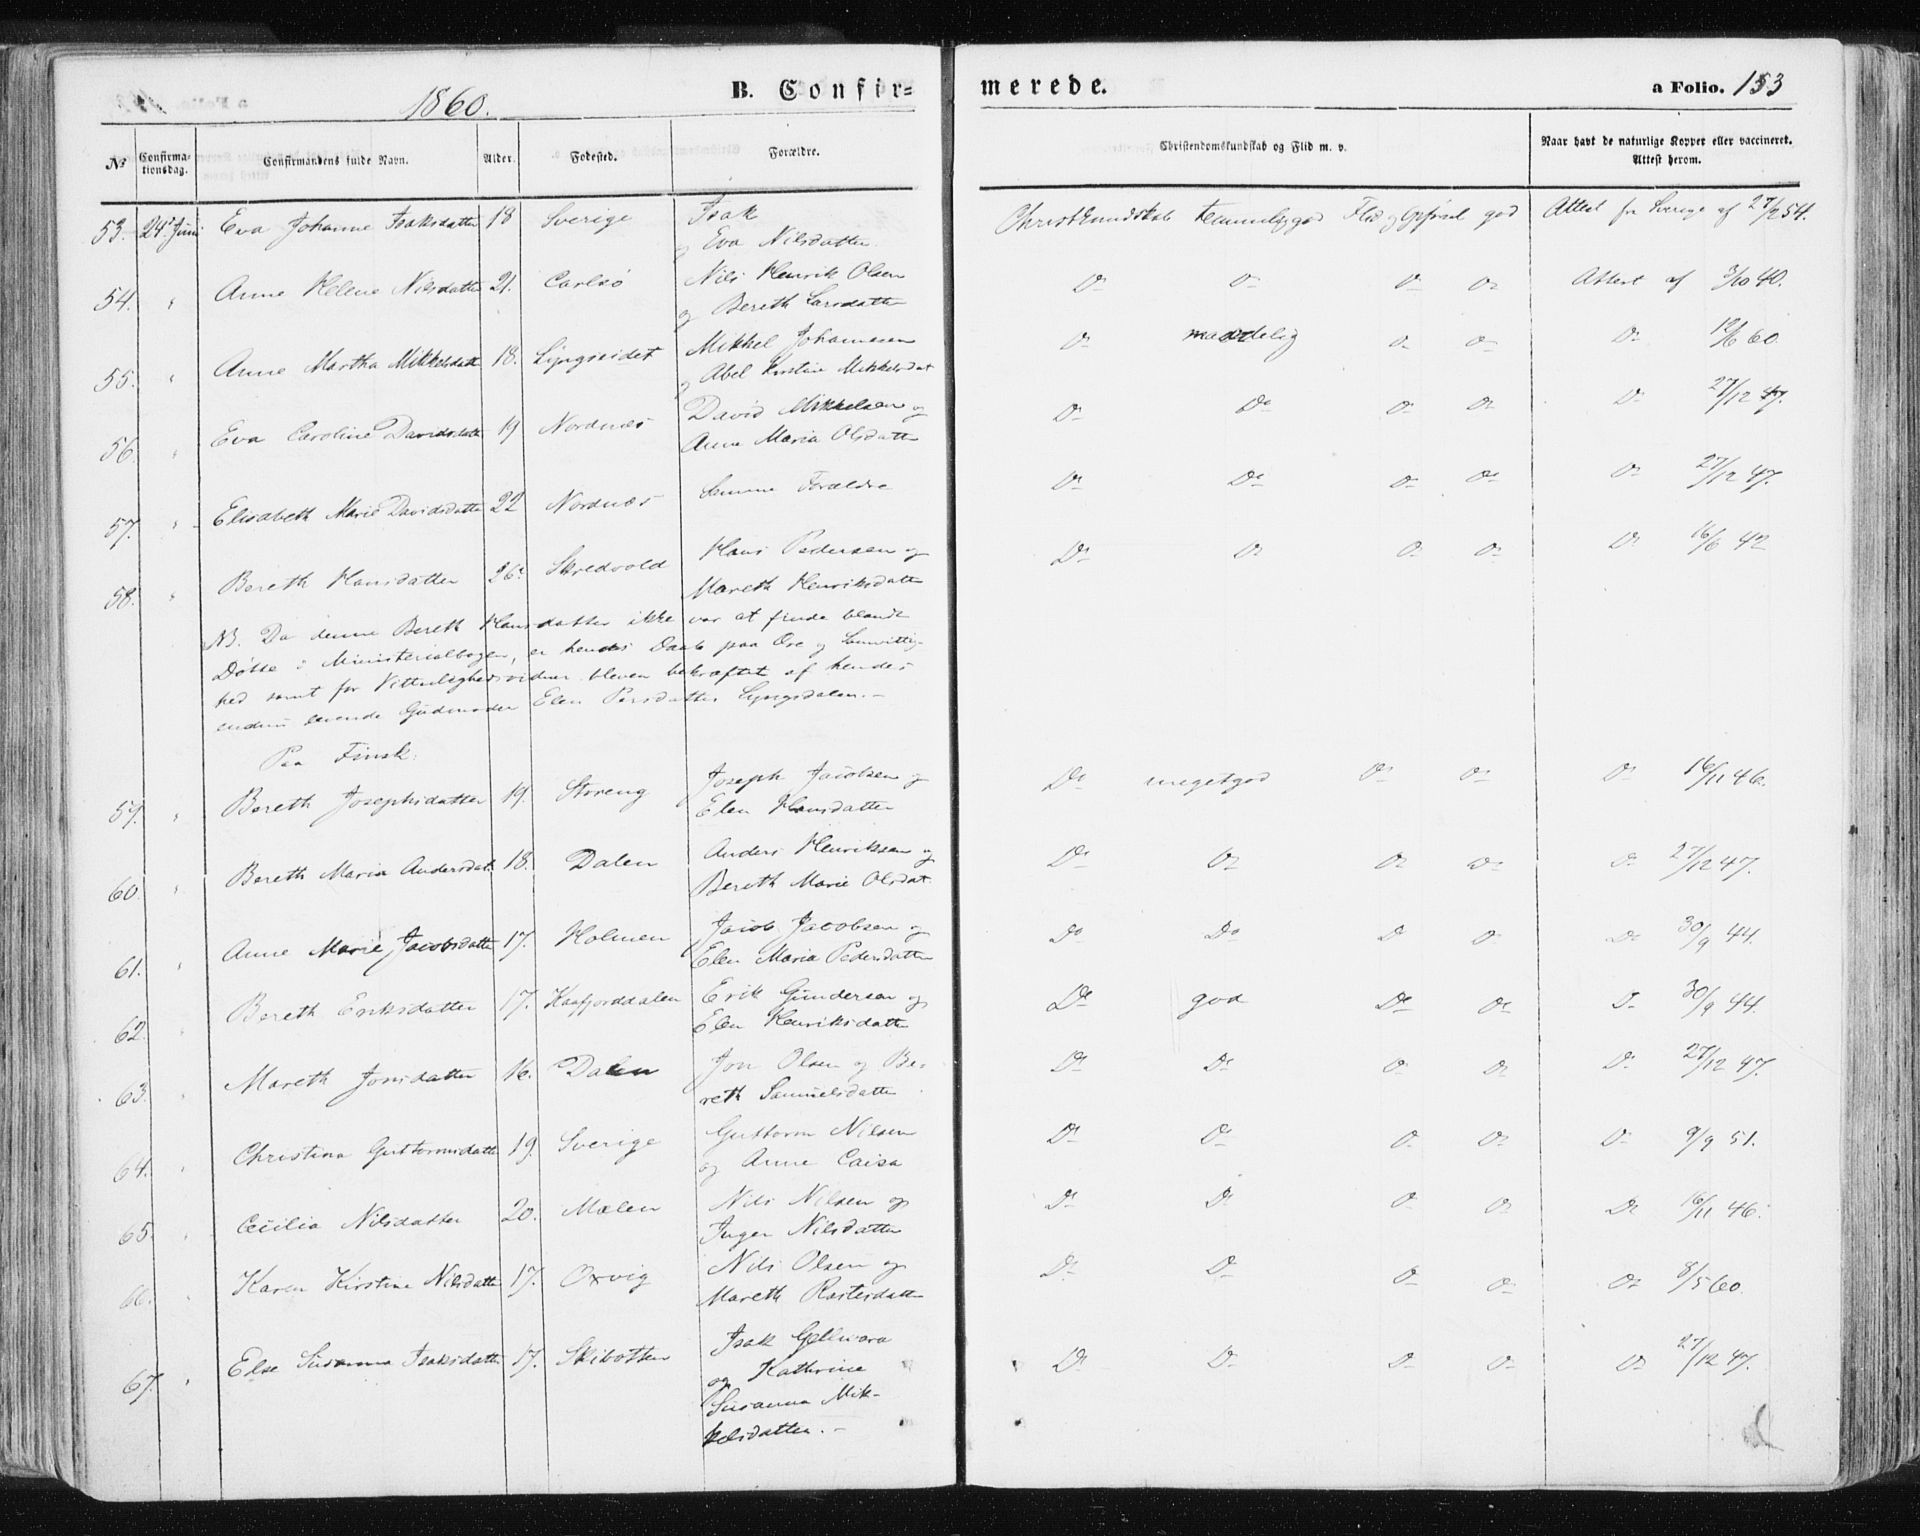 1860.
B. Confir=
merede.
a Folio. 153
No
Confirma-
tionsdag.
Confirmandens fulde Navn.
Alder.
Fødested.
Forældre.
Christendomskundskab og Flid m. v.
Naar havt de naturlige Kopper eller vaccineret.
Attest herom.
53. 24. Juni Eva Johanne Isaksdatter 18 Sverige Isak
og Eva Nilsdatter.
Christkundskab temmelig god Flid og Opførsel god Attest fra Sverige af 27/2 54.
54. " Anne Helene Nilsdatter 21. Carlsø Nils Henrik Olsen
og Bereth Larsdatter
Do Do Do Do Attest af 3/10 40.
55. " Anne Martha Mikkelsdatt 18. Lyngseidet Mikkel Johannesen
og Abel Kirstine Mikkelsdat
Do maadelig Do Do Do 12/6 60.
56. " Eva Caroline Davidsdatt 19 Nordnæs David Mikkelsen og
Anne Maria Olsdatter
Do Do Do Do Do 27/12 47.
57. " Elisabeth Marie Davidsdatter 22 Nordnæs Samme Forældre
Do Do Do Do Do 27/12 47.
58. " Bereth Hansdatter 26. Skredvold Hans Pedersen og
Mareth Henriksdatter
Do Do Do Do Do 16/6 42
NB. Da denne Bereth Hansdatter ikke var at finde blandt
Døbte i Ministerialbogen, er hendes Daab paa Ære og Samvittig-
hed samt for Vitterlighedsvidner bleven bekræftet af hendes
endnu levende Gudmoder Elen Persdatter Lyngsdalen.-
Paa Finsk:
59. " Bereth Josephsdatter 19. Storeng Joseph Jacobsen og
Elen Hansdatter
Do megetgod Do Do Do 16/11 46.
60. " Bereth Maria Andersdat. 18. Dalen Anders Henriksen og
Bereth Marie Olsdat.
Do Do Do Do Do 27/12 47.
61. " Anne Marie Jacobsdatte 17. Holmen Jacob Jacobsen og
Elen Maria Pedersdatter
Do Do Do Do Do 30/9 44.
62. " Bereth Eriksdatter 17. Kaafjorddalen Erik Gundersen og
Elen Henriksdatter
Do god Do Do Do 30/9 44.
63. " Mareth Jonsdatter 16. Dalen Jon Olsen og Be-
reth Samuelsdatter
Do Do Do Do Do 27/12 47.
64. " Christina Guttormsdatte 19. Sverige Guttorm Nilsen
og Anne Caisa
Do Do Do Do Do 9/9 51.
65. " Cecilia Nilsdatter 20. Mælen Nils Nilsen og
Inger Nilsdatter
Do Do Do Do Do 16/11 46.
66. " Karen Kirstine Nilsdatte 17. Oxvig Nils Olsen og
Mareth Rastesdatter
Do Do Do Do Do 8/5 60.
67. " Else Susanna Isaksdatter 17. Skibotten Isak Gellivara
og Kathrine
Susanna Mik-
kelsdatter.-
Do Do Do Do Do 27/12 47.